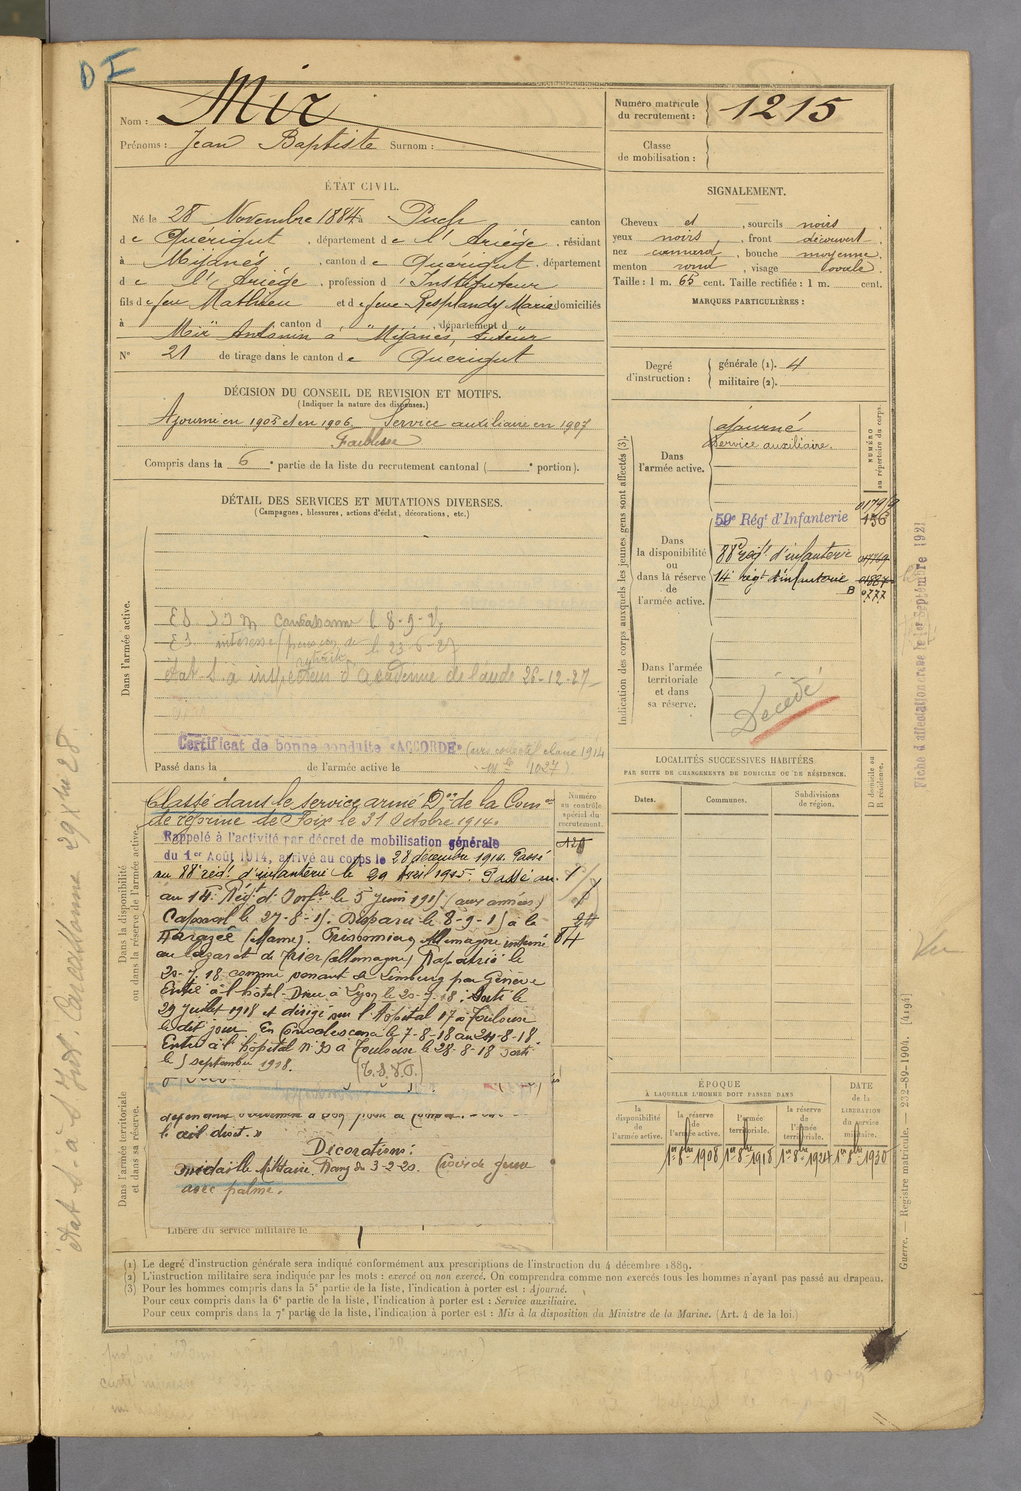 DI
Nom : Mir
Prénoms : Jean Baptiste Surnom :
Numéro matricule du recrutement : 1215
Classe de mobilisation :
ÉTAT CIVIL.
Né le 28 Novembre 1884 à Puch canton
de Quérigut, département de l'Ariège, résidant
à Mijanès, canton de Quérigut, département
de l'Ariège, profession d'Instituteur
fils de feu Mathieu et de feue Resplandy Marie domiciliés
à canton d , département d
Mir Antonin à Mijanès, tuteur
N° 21 de tirage dans le canton de Quérigut
SIGNALEMENT.
Cheveux et , sourcils noirs
yeux noirs, front découvert
nez , bouche moyenne
menton rond, visage ovale
Taille : 1 m. 65 cent. Taille rectifiée : 1 m. cent.
MARQUES PARTICULIÈRES :
Degré d'instruction : générale (1). 4
militaire (2).
DÉCISION DU CONSEIL DE REVISION ET MOTIFS.
(Indiquer la nature des dispenses.)
Ajourné en 1905 et en 1906 Service auxiliaire en 1907
Faiblesse
Compris dans la 6e partie de la liste du recrutement cantonal ( e portion).
DÉTAIL DES SERVICES ET MUTATIONS DIVERSES.
(Campagnes, blessures, actions d'éclat, décorations, etc.)
Dans l'armée active.
Etat S. à inspecteur d'Académie de l'aude 26-12-27
Certificat de bonne conduite «ACCORDÉ»
classe 1914
1027)
Passé dans la de l'armée active le
Indication des corps auxquels les jeunes gens sont affectés (3).
NUMÉRO au répertoire du corps.
Dans l'armée active.
ajourné
Service auxiliaire.
Dans la disponibilité ou dans la réserve de l'armée active.
59e Régt d'Infanterie
156
88e régt d'infanterie
14e régt d'infanterie
Dans l'armée territoriale et dans sa réserve.
Décédé
Fiche d'affectation créée le 1er Septembre 1921
Vu
LOCALITÉS SUCCESSIVES HABITÉES
PAR SUITE DE CHANGEMENTS DE DOMICILE OU DE RÉSIDENCE.
Dates.
Communes.
Subdivisions de région.
D domicile ou R résidence.
Dans la disponibilité ou dans la réserve de l'armée active.
Numéro au contrôle spécial du recrutement.
Classé dans le service armé Don de la Comon
de réforme de Foix le 31 Octobre 1914.
Rappelé à l'activité par décret de mobilisation générale
du 1er Août 1914, arrivé au corps le 28 décembre 1914. Passé
au 88e régt d'infanterie le 29 Avril 1915. Passé au
au 14e Régt d'Infie le 5 juin 1915 (aux armées)
Caporal le 27-8-15. Disparu le 8-9-15 à la
Harazée (Marne). Prisonnier Allemagne interné
au lazaret de Trier (allemagne) Rapatrié le
20-7-18 comme venant de Limburg par Genève
Entré à l'hôtel-Dieu à Lyon le 20-7-18. Sorti le
29 Juillet 1918 et dirigé sur l'hôpital 17 à Toulouse
le dit jour. En Convalescence le 7-8-18 au 24-8-18
Entré à l'hôpital n° 30 à Toulouse le 28-8-18 sorti
le 5 septembre 1918. (T.S.V.P.)
84
Dans l'armée territoriale et dans sa réserve.
le œil droit. »
Décorations :
médaille Militaire. Rang du 3-2-20. Croix de guerre
avec palme.
Libéré du service militaire le
ÉPOQUE
À LAQUELLE L'HOMME DOIT PASSER DANS
la disponibilité de l'armée active.
la réserve de l'armée active.
l'armée territoriale.
la réserve de l'armée territoriale.
DATE de la LIBÉRATION du service militaire.
1er 8bre 1908
1er 8bre 1918
1er 8bre 1924
1er 8bre 1930
Guerre. — Registre matricule. — 232-89-1904. [4194]
(1) Le degré d'instruction générale sera indiqué conformément aux prescriptions de l'instruction du 4 décembre 1889.
(2) L'instruction militaire sera indiquée par les mots : exercé ou non exercé. On comprendra comme non exercés tous les hommes n'ayant pas passé au drapeau.
(3) Pour les hommes compris dans la 5e partie de la liste, l'indication à porter est : Ajourné.
Pour ceux compris dans la 6e partie de la liste, l'indication à porter est : Service auxiliaire.
Pour ceux compris dans la 7e partie de la liste, l'indication à porter est : Mis à la disposition du Ministre de la Marine. (Art. 4 de la loi.)